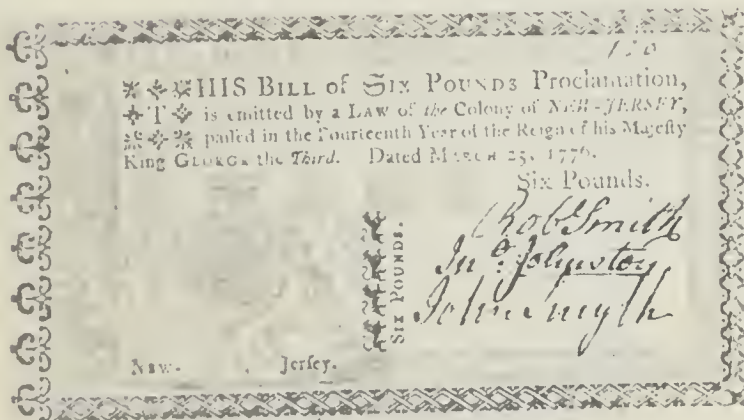 120
THIS BILL of SIX POUNDS Proclamation,
is emitted by a LAW of the Colony of NEW-JERSEY,
paſſed in the Fourteenth Year of the Reign of his Majeſty
King GEORGE the Third. Dated MARCH 25, 1776.
Six Pounds.
SIX POUNDS.
Robt Smith
Jno. Johnston
John Smyth
New- Jerſey.